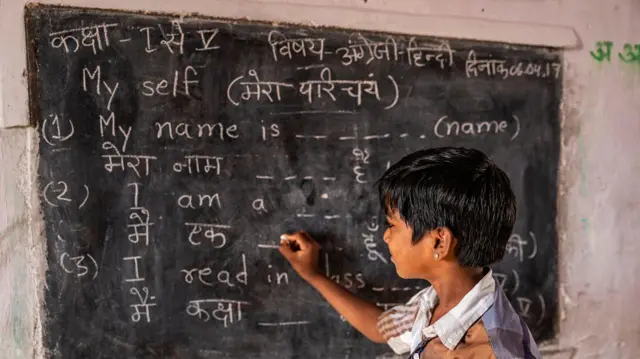 कक्षा - I से V विषय - अंग्रेजी - हिन्दी दिनांक 06.04.17
My self (मेरा परिचय)
(1) My name is _ _ _ _ _ . . (name)
मेरा नाम _ _ _ _ है
(2) I am a
मैं एक _ हूँ
(3) I read in class _ _ _
मैं कक्षा _ _ V)
अ अ